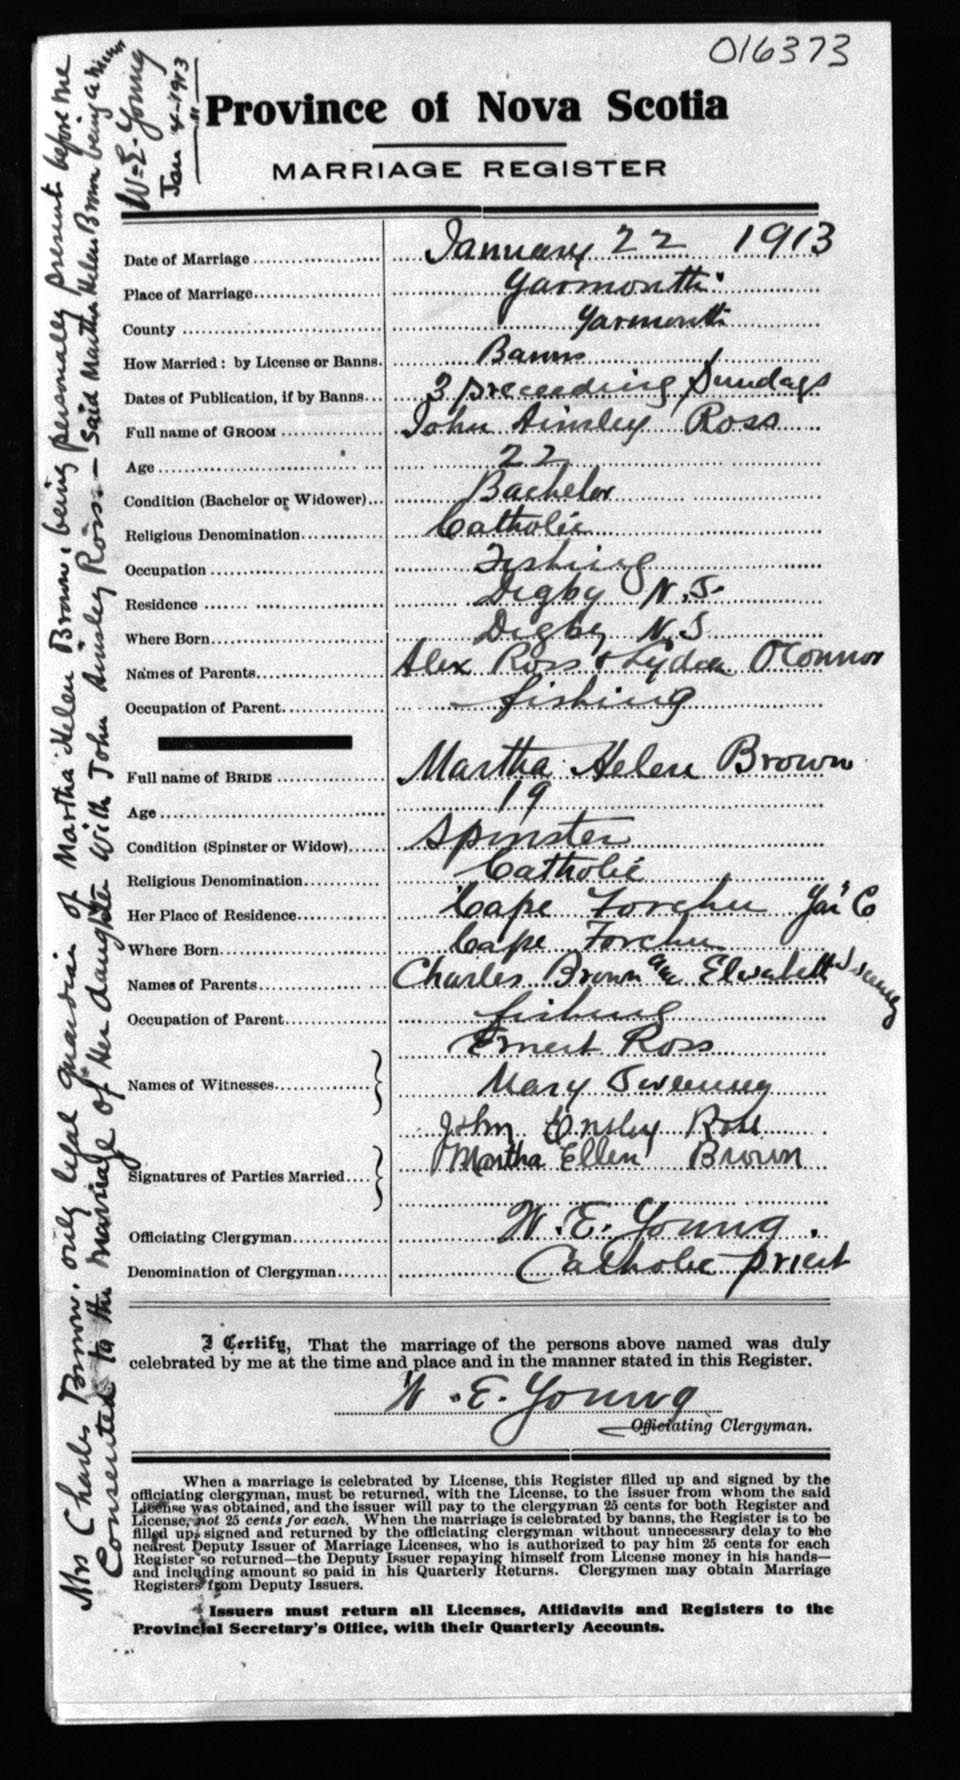 016373
Province of Nova Scotia
MARRIAGE REGISTER
Date of Marriage January 22 1913
Place of Marriage Yarmouth
County Yarmouth
How Married: by License or Banns. Banns
Dates of Publication, if by Banns 3 preceeding Sundays
Full name of GROOM John Ainsley Ross
Age 22
Condition (Bachelor or Widower) Bachelor
Religious Denomination Catholic
Occupation Fishing
Residence Digby N.S.
Where Born Digby N.S
Names of Parents Alex Ross & Lydia O'Connor
Occupation of Parent fishing
Full name of BRIDE Martha Helen Brown
Age 19
Condition (Spinster or Widow) Spinster
Religious Denomination Catholic
Her Place of Residence Cape Forchu Yar Co
Where Born Cape Forchu
Names of Parents Charles Brown and Elizabeth Sweeney
Occupation of Parent fishing
Names of Witnesses Ernest Ross
Mary Sweeney
Signatures of Parties Married John Ensley Ross
Martha Ellen Brown
Officiating Clergyman W. E. Young.
Denomination of Clergyman Catholic priest
I Certify, That the marriage of the persons above named was duly
celebrated by me at the time and place and in the manner stated in this Register.
W. E. Young
Officiating Clergyman.
When a marriage is celebrated by License, this Register filled up and signed by the
officiating clergyman, must be returned, with the License, to the issuer from whom the said
License was obtained, and the issuer will pay to the clergyman 25 cents for both Register and
License, not 25 cents for each. When the marriage is celebrated by banns, the Register is to be
filled up, signed and returned by the officiating clergyman without unnecessary delay to the
nearest Deputy Issuer of Marriage Licenses, who is authorized to pay him 25 cents for each
Register so returned—the Deputy Issuer repaying himself from License money in his hands—
and including amount so paid in his Quarterly Returns. Clergymen may obtain Marriage
Registers from Deputy Issuers.
Issuers must return all Licenses, Affidavits and Registers to the
Provincial Secretary's Office, with their Quarterly Accounts.
Mrs Charles Brown, only legal guardian of Martha Helen Brown, being personally present before me
Consented to the marriage of Her daughter with John Ainsley Ross — Said Martha Helen Brown being a minor
W. E. Young
Jan 1913